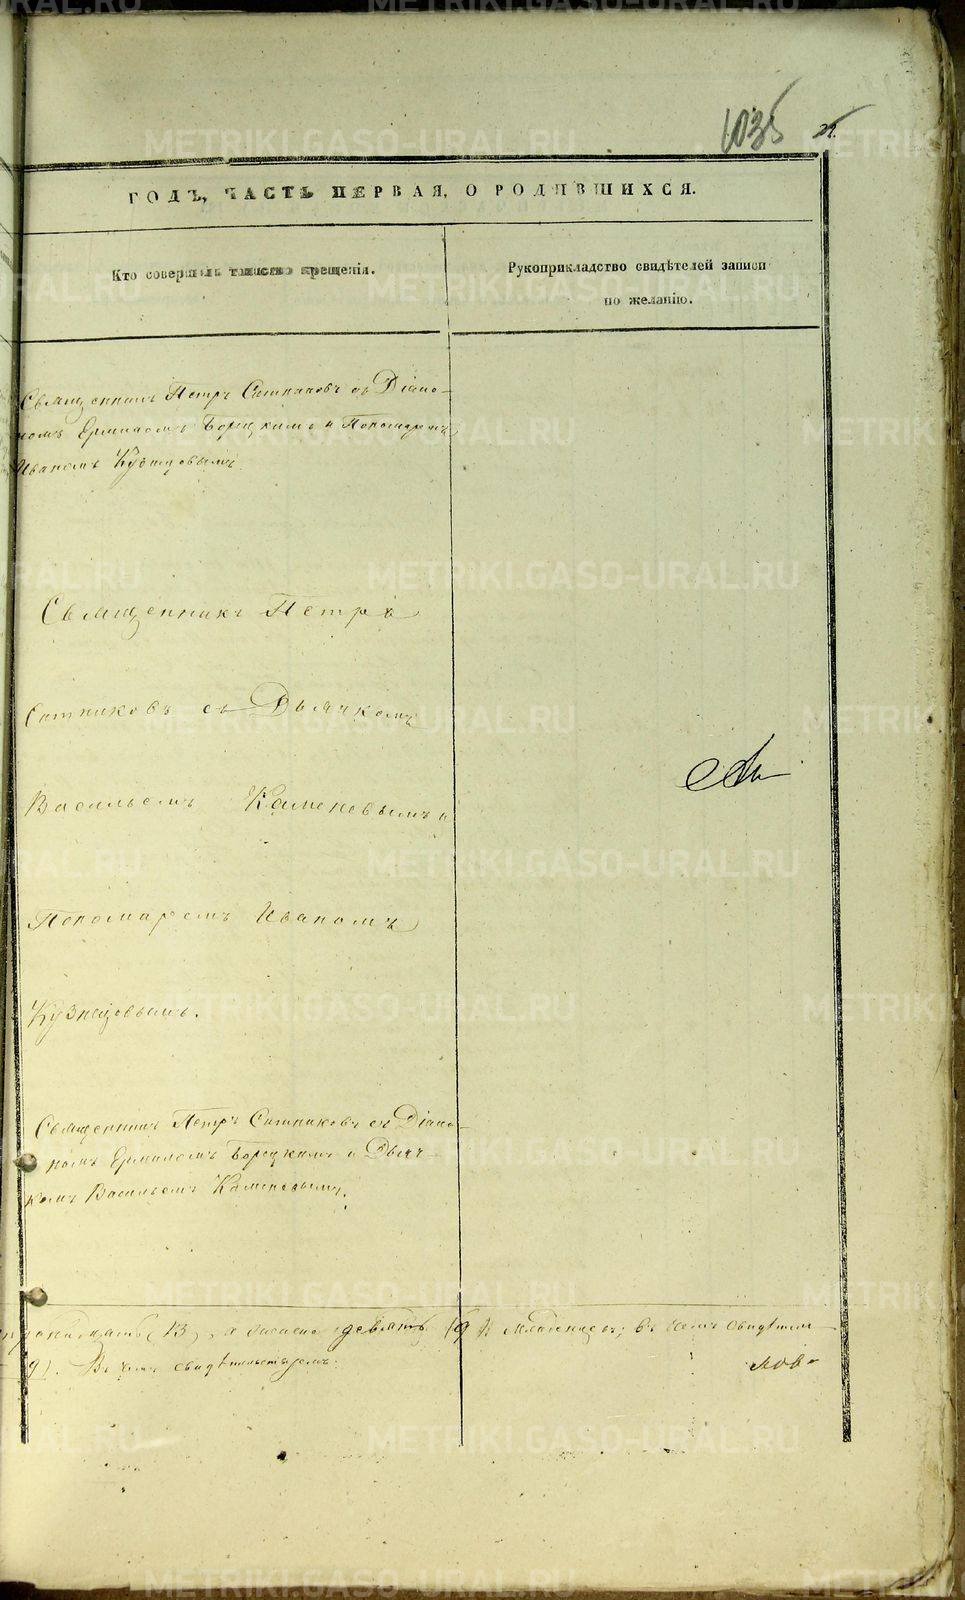 1035 22.
ГОДЪ, ЧАСТЬ ПЕРВАЯ, О РОДИВШИХСЯ.
Кто совершалъ таинство крещенія.
Рукоприкладство свидѣтелей записи
по желанію.
Священникъ Петръ Ситниковъ съ Діако-
номъ Ермиломъ Борецкимъ и Пономаремъ
Иваномъ Кузнецовымъ.
Священникъ Петръ
Ситниковъ съ Дьячкомъ
Васильемъ Каменевымъ и
Пономаремъ Иваномъ
Кузнецовымъ.
Священникъ Петръ Ситниковъ съ Діако-
номъ Ермиломъ Борецкимъ и Дьяч-
комъ Васильемъ Каменевымъ.
(13), а женска девять (9) младенцевъ; въ чемъ свидѣтель-
9). Въ чемъ свидѣтельствуемъ:
METRIKI.GASO-URAL.RU